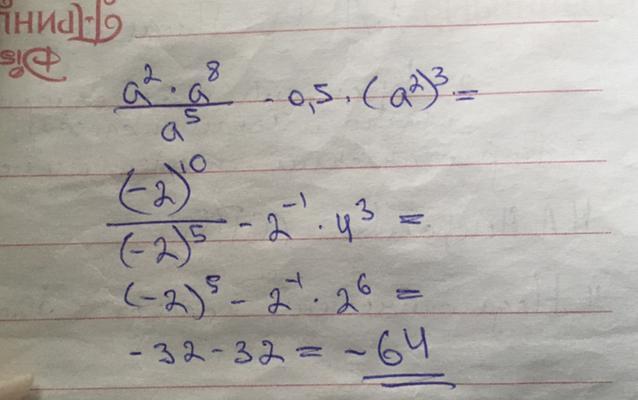 a² · a⁸ / a⁵ - 0,5 · (a²)³ =
(-2)¹⁰ / (-2)⁵ - 2⁻¹ · 4³ =
(-2)⁵ - 2⁻¹ · 2⁶ =
-32 - 32 = -64